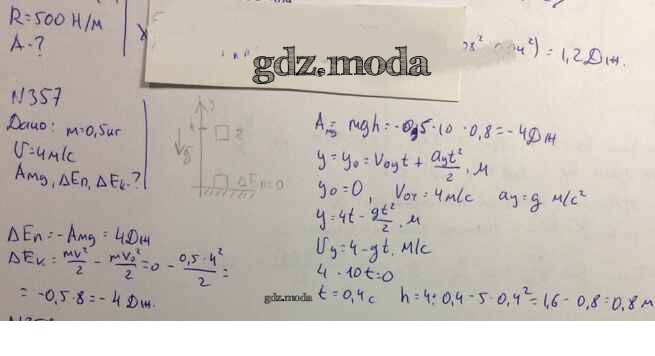 R=500 Н/м
A-?
gdz.moda
)=1,2 Дж.
N357
Дано: m=0,5 кг
U=4 м/с
Amg, ΔEп, ΔEк-?
y
h
2
g
ΔEп=0
Amg = mgh = -0,5·10·0,8 = -4 Дж
y = y₀ = V₀yt + ayt²/2, м
y₀=0, V₀y=4 м/с ay=g м/с²
y=4t - gt²/2, м
Uy=4-gt, м/с
4 - 10t=0
t=0,4 с h=4·0,4-5·0,4²=1,6-0,8=0,8 м
ΔEп=-Amg=4 Дж
ΔEк = mv²/2 - mv₀²/2 = 0 - 0,5·4²/2 =
= -0,5·8 = -4 Дж.
gdz.moda